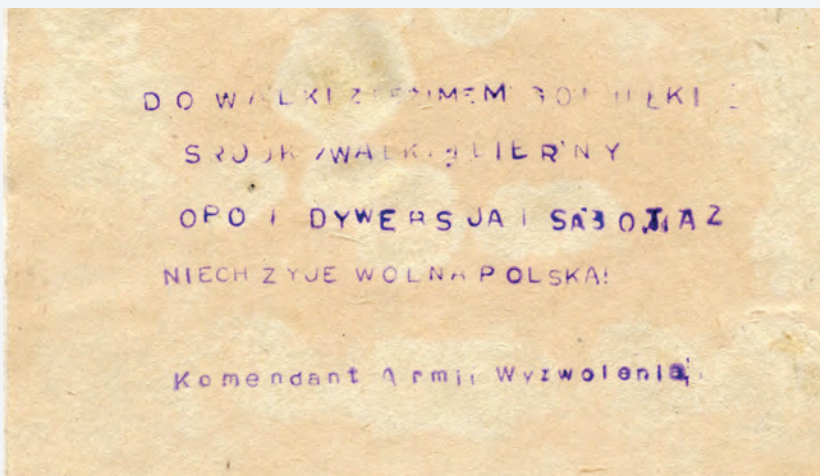 DO WALKI Z REŻIMEM GOMUŁKI
ŚRODKI WALKI BIERNY
OPOR DYWERSJA I SABOTAZ
NIECH ZYJE WOLNA POLSKA!
Komendant Armii Wyzwolenia